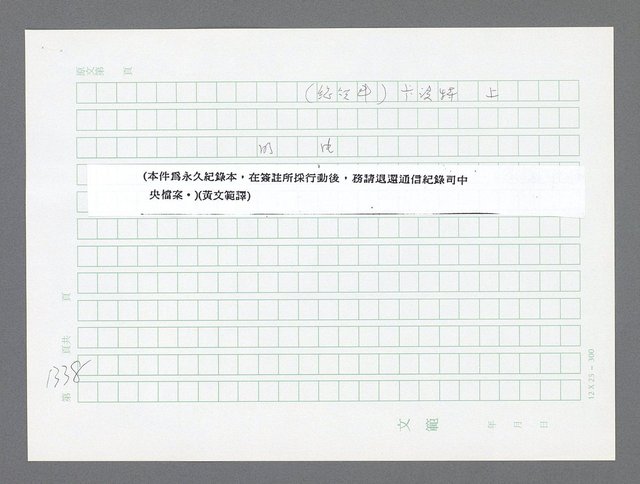 原文第 頁
卡波特 上
明 虎
(本件為永久紀錄本，在簽註所採行動後，務請退還通信紀錄司中
央檔案。)(黃文範譯)
頁
頁共
1338
第
12×25=300
文 範 年 月 日